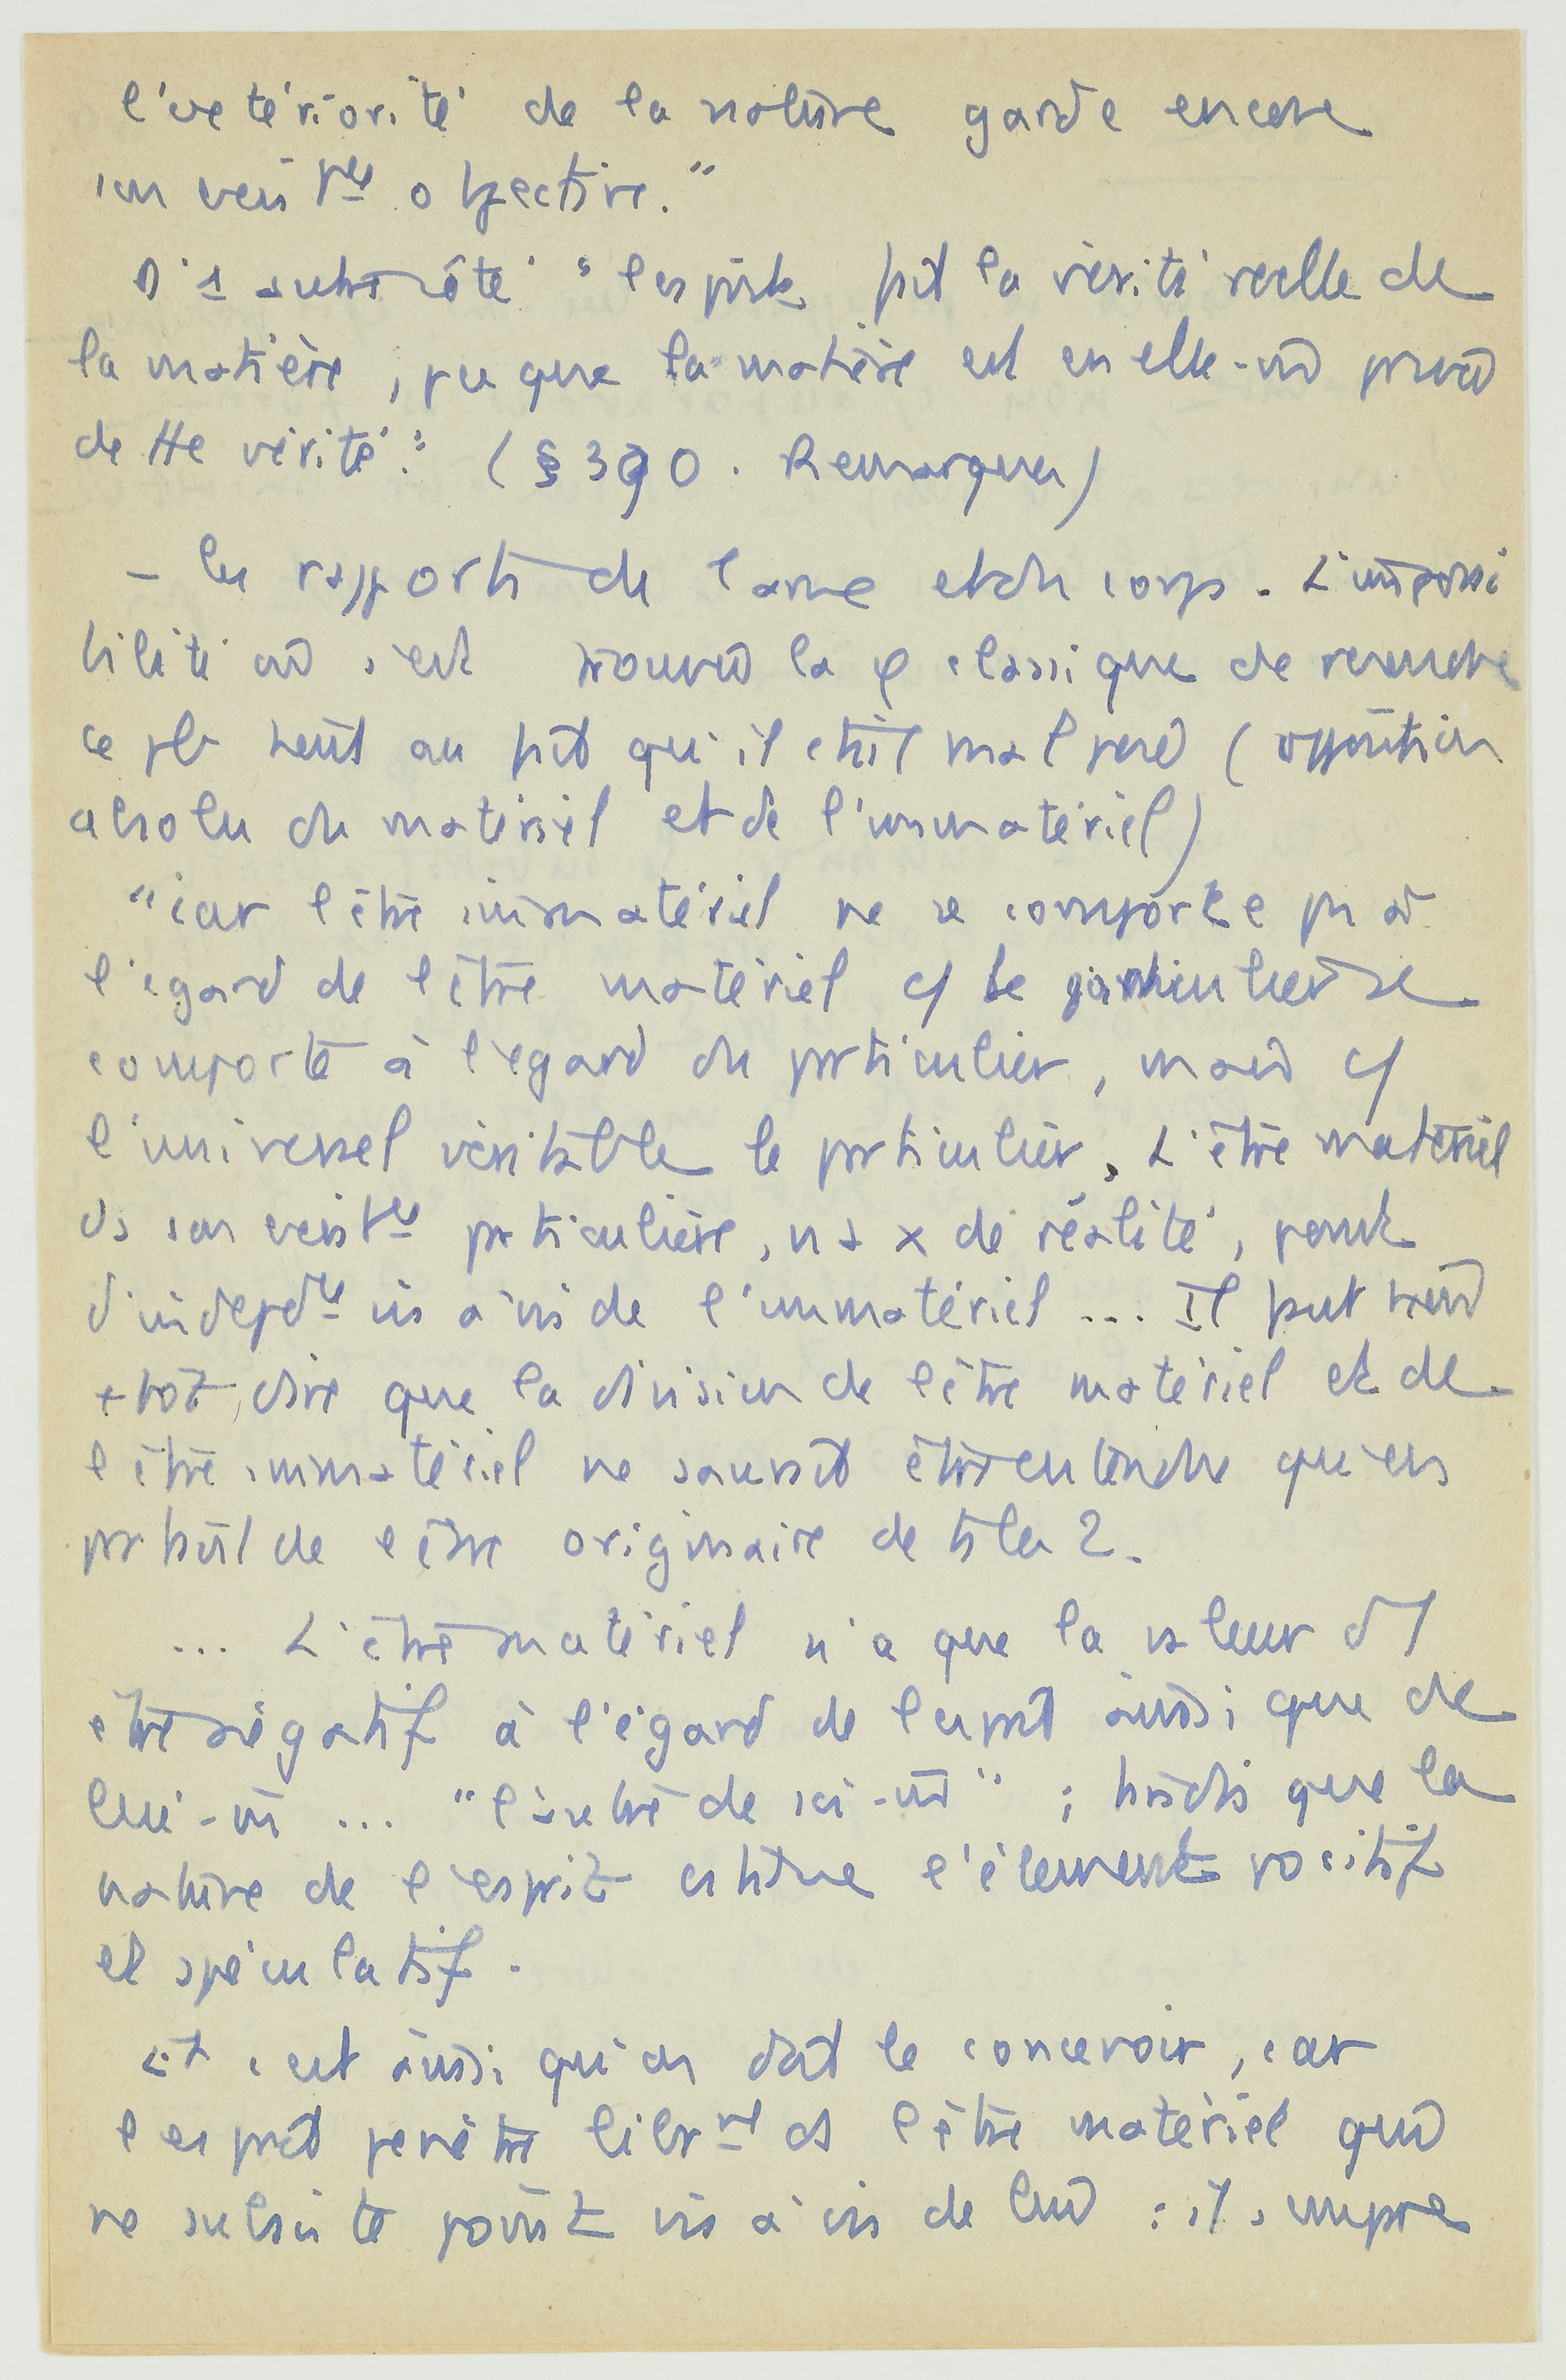 l'extériorité de la nature garde encore
son exis^tce objective."
D'1 autre côté "l'esprit fait la vérité réelle de
la matière, pr que la matière est en elle-m̂ privée
de tte vérité." (§ 390. Remarques)
– les rapports de l'âme et du corps. L'impossi
bilité où s'est trouvée la φ classique de résoudre
ce pb tient au fait qu'il était mal posé (opposition
absolu du matériel et de l'immatériel)
"car l'être immatériel ne se comporte pas à
l'égard de l'être matériel c/ le particulier se
comporte à l'égard du particulier, mais c/
l'universel véritable le particulier. L'être matériel
ds son exis^tce particulière, n'a x de réalité, point
d'indépd^ce vis à vis de l'immatériel ... Il faut
+ tôt dire que la division de l'être matériel et de
l'être immatériel ne saurait être entendue qu'en
partant de l'être originaire de ts les 2.
... L'être matériel n'a que la valeur d'1
être négatif à l'égard de l'esprit aussi que de
lui-m̂ ... "l'autre de soi-m̂" ; tandis que la
nature de l'esprit constitue l'élément positif
et spéculatif.
Et c'est aussi qu'on doit le concevoir, car
l'esprit pénètre libr^mt ds l'être matériel qui
ne subsiste point vis à vis de lui : il s'empare